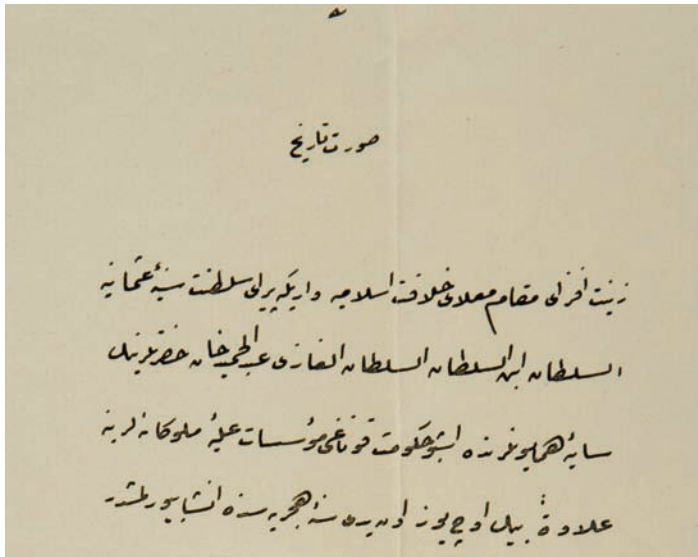 صورت تاریخ
زینت افزای مقام معلای خلافت اسلامیه واریکه پیرای سلطنت سنیهٔ عثمانیه
السلطان ابن السلطان السلطان الغازی عبدالحمید خان حضرتلرینك
سایهٔ همایونلرنده اشبو حکومت قوناغی مؤسسات علیهٔ ملوکانه لرینه
علاوةً بیك اوچ یوز اون بری سنهٔ هجریه سنده انشا بیورلمشدر